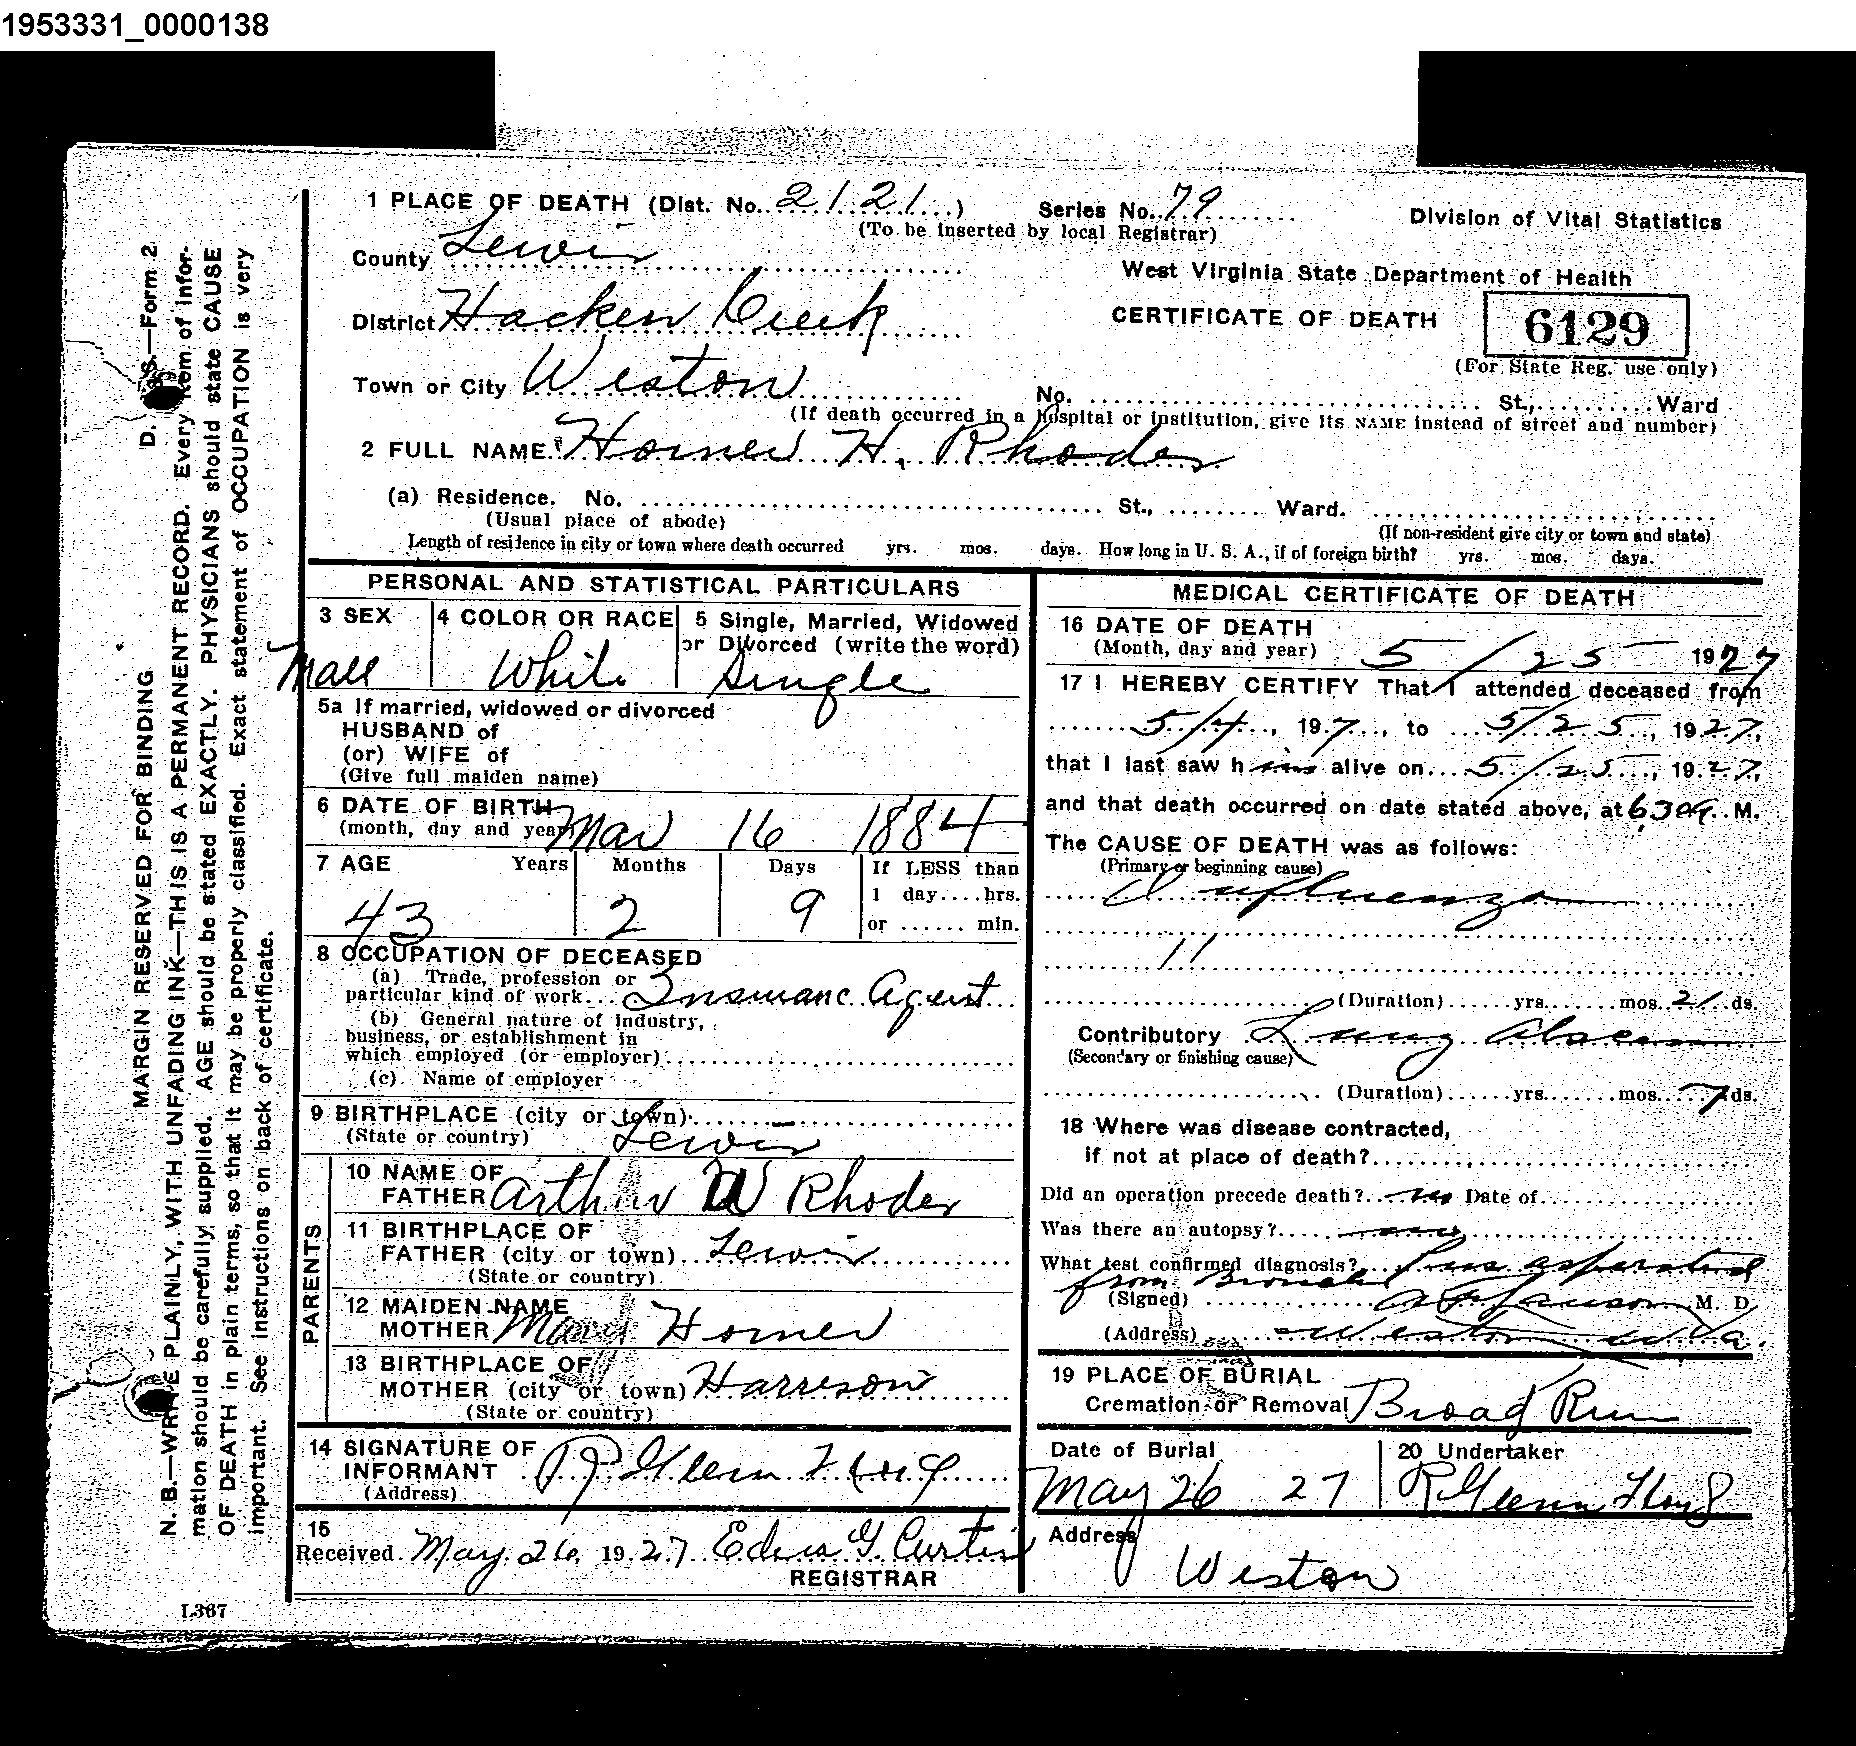 1953331_0000138
1 PLACE OF DEATH (Dist. No. 2121) Series No. 79
(To be inserted by local Registrar)
Division of Vital Statistics
County Lewis
West Virginia State Department of Health
District Hacken Creek
CERTIFICATE OF DEATH 6129
(For State Reg. use only)
Town or City Weston
No. St., Ward
(If death occurred in a hospital or institution, give its NAME instead of street and number)
2 FULL NAME Horner H. Rhodes
(a) Residence. No. St., Ward.
(Usual place of abode) (If non-resident give city or town and state)
Length of residence in city or town where death occurred yrs. mos. days. How long in U. S. A., if of foreign birth? yrs. mos. days.
PERSONAL AND STATISTICAL PARTICULARS
3 SEX 4 COLOR OR RACE 5 Single, Married, Widowed
or Divorced (write the word)
Male White Single
5a If married, widowed or divorced
HUSBAND of
(or) WIFE of
(Give full maiden name)
6 DATE OF BIRTH
(month, day and year) Mar 16 1884
7 AGE Years Months Days If LESS than
1 day....hrs.
43 2 9 or ...... min.
8 OCCUPATION OF DECEASED
(a) Trade, profession or
particular kind of work... Insuranc Agent
(b) General nature of industry,
business, or establishment in
which employed (or employer)
(c) Name of employer
9 BIRTHPLACE (city or town)
(State or country) Lewis
PARENTS
10 NAME OF
FATHER Arthur W Rhodes
11 BIRTHPLACE OF
FATHER (city or town) Lewis
(State or country)
12 MAIDEN NAME
MOTHER Mary Horner
13 BIRTHPLACE OF
MOTHER (city or town) Harreson
(State or country)
14 SIGNATURE OF
INFORMANT R Glenn Hoyd
(Address)
15
Received May 26, 1927 Edna G. Curtis
REGISTRAR
MEDICAL CERTIFICATE OF DEATH
16 DATE OF DEATH
(Month, day and year) 5/25 1927
17 I HEREBY CERTIFY That I attended deceased from
5/4, 197, to 5/25, 1927,
that I last saw h im alive on 5/25, 1927,
and that death occurred on date stated above, at 630a M.
The CAUSE OF DEATH was as follows:
(Primary or beginning cause)
Influenza
11
(Duration) yrs. mos. 21 ds.
Contributory Lung Abscess
(Secondary or finishing cause)
(Duration) yrs. mos. 7 ds.
18 Where was disease contracted,
if not at place of death?
Did an operation precede death? no Date of
Was there an autopsy? no
What test confirmed diagnosis? Pus asperated
from Bronchi
(Signed) M. D.
(Address) Weston W Va.
19 PLACE OF BURIAL
Cremation or Removal Broad Run
Date of Burial 20 Undertaker
May 26 27 R Glenn Hoyd
Address
Weston
D. S.—Form 2
MARGIN RESERVED FOR BINDING
N. B.—WRITE PLAINLY, WITH UNFADING INK—THIS IS A PERMANENT RECORD. Every item of infor-
mation should be carefully supplied. AGE should be stated EXACTLY. PHYSICIANS should state CAUSE
OF DEATH in plain terms, so that it may be properly classified. Exact statement of OCCUPATION is very
important. See instructions on back of certificate.
L367